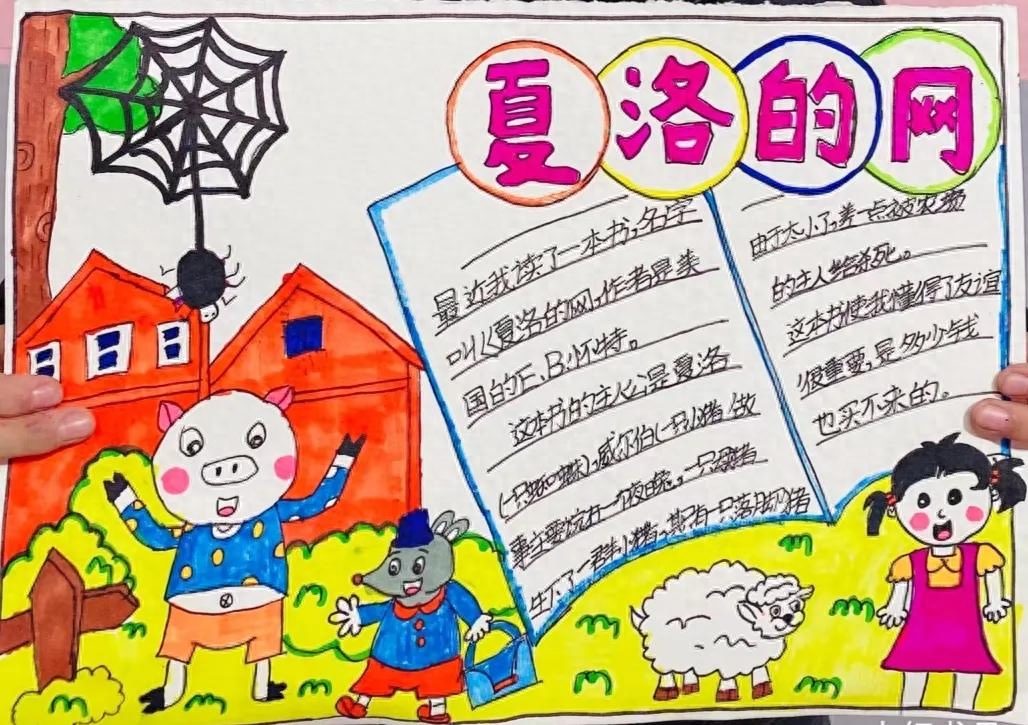 夏洛的网
最近我读了一本书,名字
叫《夏洛的网》,作者是美
国的E.B.怀特。
这本书的主人公是夏洛
(一只蜘蛛),威尔伯(一只小猪)。故
事主要说在一个夜晚,一只母猪
生下了一群小猪,其中有一只落脚猪
由于太小了,差一点被农场
的主人给杀死。
这本书使我懂得了友谊
很重要,是多少钱
也买不来的。